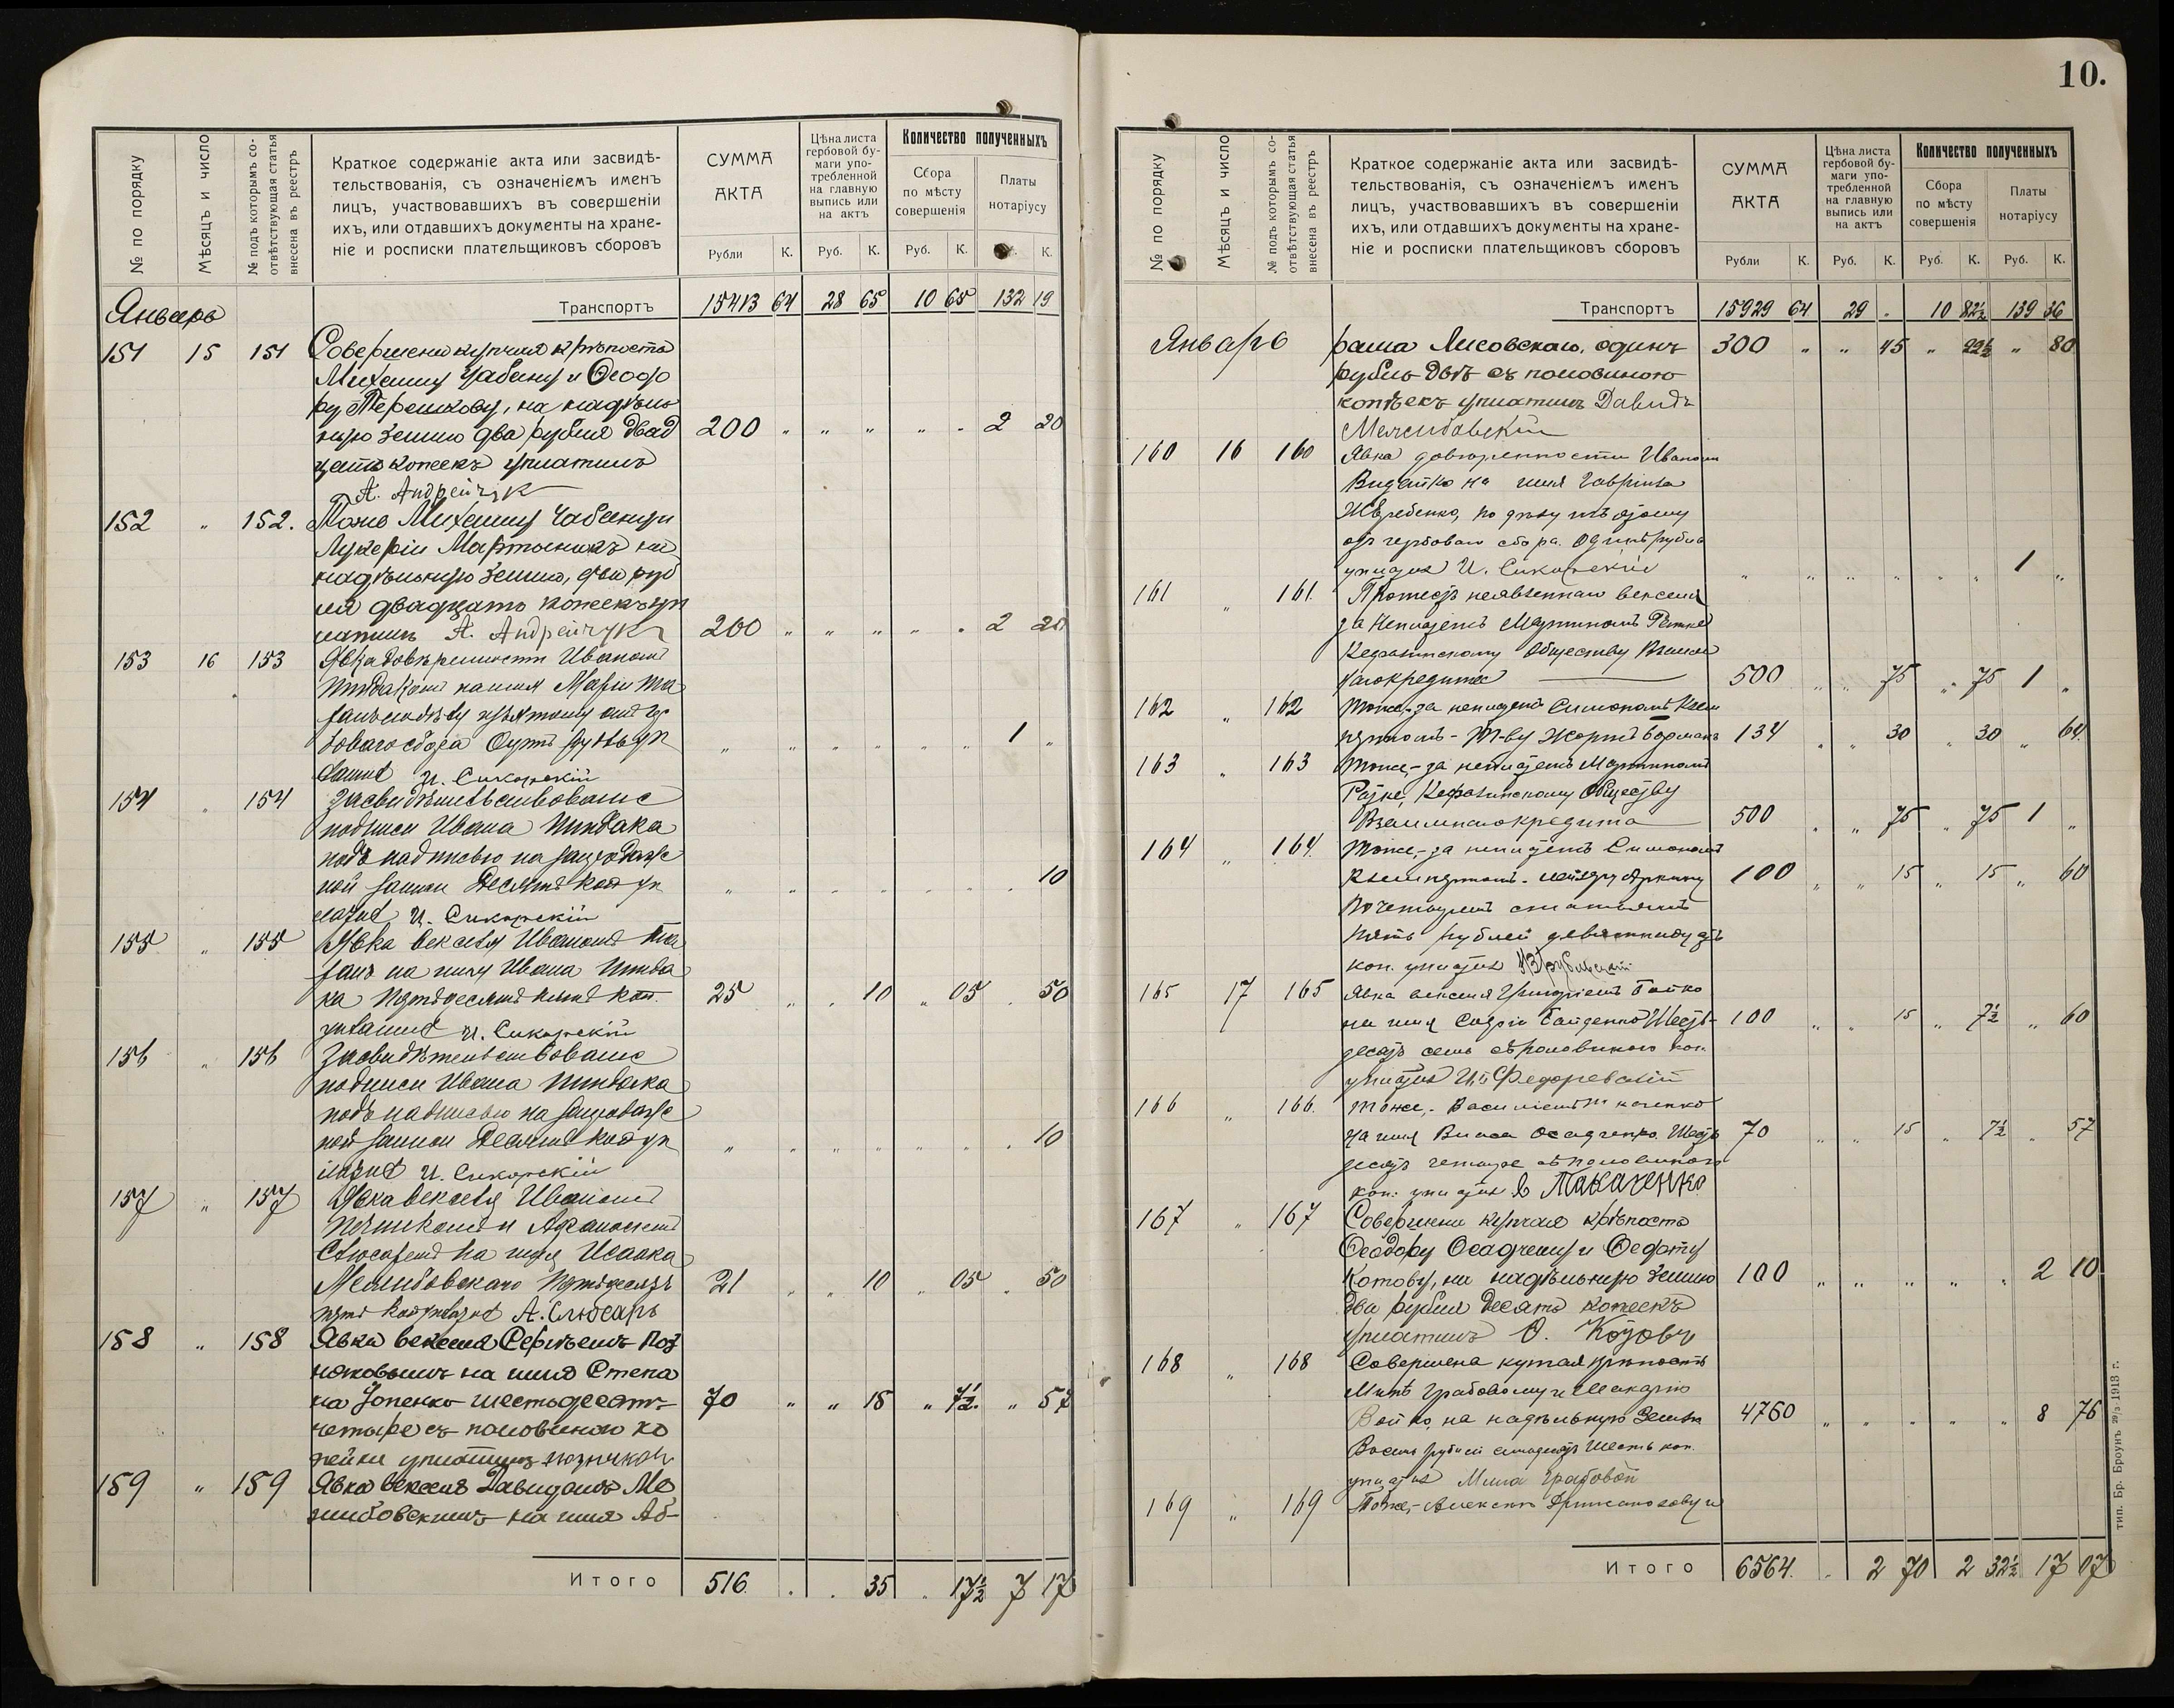 № по порядку
Мѣсяцъ и число
№ подъ которымъ со-
отвѣтствующая статья
внесена въ реестръ
Краткое содержаніе акта или засвидѣ-
тельствованія, съ означеніемъ именъ
лицъ, участвовавшихъ въ совершеніи
ихъ, или отдавшихъ документы на хране-
ніе и росписки плательщиковъ сборовъ
СУММА
АКТА
Рубли К.
Цѣна листа
гербовой бу-
маги упо-
требленной
на главную
выпись или
на актъ
Руб. К.
Количество полученныхъ
Сбора
по мѣсту
совершенія
Руб. К.
Платы
нотаріусу
К.
Январь Транспортъ 15413 64 28 65 10 65 132 19
151 15 151 Совершена купчая крѣпость
Михаилу Чабану и Ѳеодо
ру Терешкову, на надѣль
ную землю два рубля двад 200 " " " " " 2 20
цать копеекъ уплатилъ
А. Андрейчук
152 " 152. Тоже Михаилу Чабану и
Лукеріи Мартынюкъ на
надѣльную землю, два руб
ля двадцать копеекъ уп
латилъ А. Андрейчукъ 200 " " " " " 2 20
153 16 153 Явка довѣренности Иваномъ
на имя Маріи
" " " " " " 1 "
И. Сикорскій
154 " 154 Засвидѣтельствованіе
подписи Ивана
подъ надписью на
ной записи Десять коп уп " " " " " " . 10
латилъ И. Сикорскій
155 " 155 Явка векселя Иваномъ
на имя Ивана
ка Пятьдесятъ пять коп. 25 " " 10 " 05 . 50
И. Сикорскій
156 " 156 Засвидѣтельствованіе
подписи Ивана
подъ надписью на
ной записи Десять коп уп " " " " " " . 10
латилъ И. Сикорскій
157 " 157 Явка векселя Иваномъ
на имя Исаака
Межибовскаго Пятьдесятъ 21 " " 10 " 05 " 50
пять коп уплатилъ А. Слюсарь
158 " 158 Явка векселя Сергѣемъ Поз
няковымъ на имя Степа
на Зопенко шестьдесятъ 70 " " 15 " 7½ " 57
четыре съ половиною ко
пейки уплатилъ
159 " 159 Явка векселя Давидомъ Ме
жибовскимъ на имя Аб-
Итого 516. . . 35 " 17½ 7 17
10.
№ по порядку
Мѣсяцъ и число
№ подъ которымъ со-
отвѣтствующая статья
внесена въ реестръ
Краткое содержаніе акта или засвидѣ-
тельствованія, съ означеніемъ именъ
лицъ, участвовавшихъ въ совершеніи
ихъ, или отдавшихъ документы на хране-
ніе и росписки плательщиковъ сборовъ
СУММА
АКТА
Рубли К.
Цѣна листа
гербовой бу-
маги упо-
требленной
на главную
выпись или
на актъ
Руб. К.
Количество полученныхъ
Сбора
по мѣсту
совершенія
Руб. К.
Платы
нотаріусу
Руб. К.
Транспортъ 15929 64 29 . 10 82½ 139 36
Январь рама Лисовскаго, одинъ 300 " " 45 " 22½ " 80
рубль двѣ съ половиною
копѣекъ уплатилъ Давидъ
Межибовскій
160 16 160 Явка довѣренности Иваномъ
на имя Гавріила
Жеребенко, по дѣлу изъятому
отъ гербоваго сбора. Одинъ рубль
уплатилъ И. Сикорскій " " " " " " 1 "
161 " 161. Протестъ неявленнаго векселя
за неплатежъ Мартиномъ
Обществу Взаим
наго кредита 500 " " 75 " 75 1 "
162 " 162 Тоже,- за неплатежъ Симономъ
Т-ву Жоржъ Борманъ 134 " " 30 " 30 " 64.
163 " 163 Тоже,- за неплатежъ Мартиномъ
Обществу
Взаимнаго кредита 500 " " 75 " 75 1 "
164 " 164. Тоже,- за неплатежъ Симономъ
100 " " 15 " 15 " 60
По четыремъ статьямъ
пять рублей девяносто
коп. уплатилъ
165 17 165 Явка векселя Григоріемъ Бойко
на имя Софіи Шесть- 100 " " 15 " 7½ " 60
десятъ семь съ половиною коп.
уплатилъ Федоревскій
166 " 166. Тоже,- Василіемъ
на имя Осадченко. Шесть 70 " " 15 " 7½ " 57
десятъ четыре съ половиною
коп. уплатилъ В Макаченко
167 " 167 Совершена купчая крѣпость
Ѳеодору Осадчему и Ѳедоту
Котову, на надѣльную землю 100 " " " " " 2 10
Два рубля десять копеекъ
уплатилъ Ѳ. Котовъ
168 " 168 Совершена купчая крѣпость
Минѣ Грабовому и Макарію
Бойко, на надѣльную Землю 4760 " " " " " 8 76
Восемь рублей семьдесятъ шесть коп.
уплатилъ Мина Грабовой
169 " 169 Тоже,- Алексѣю
Итого 6564. . 2 70 2 32½ 17 07
тип. Бр. Броунъ 1913 г.